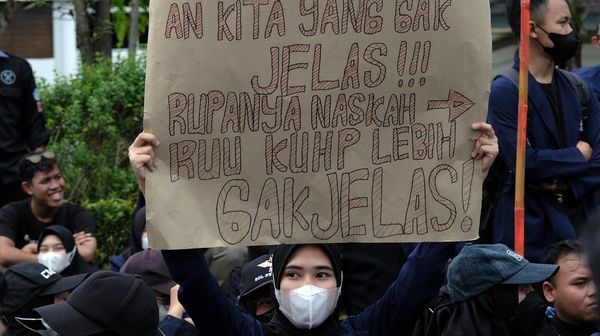 AN KITA YANG GAK
JELAS!!!
RUPANYA NASKAH →
RUU KUHP LEBIH
GAK JELAS!